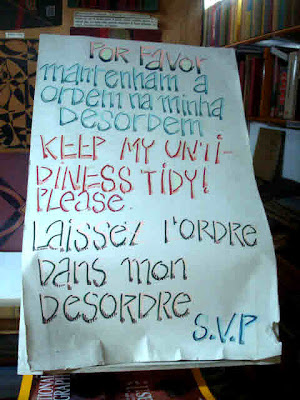 POR FAVOR
mantenham a
ordem na minha
desordem
KEEP MY UNTI-
DINESS TIDY!
Please.
Laissez l'ordre
dans mon
desordre
S.V.P